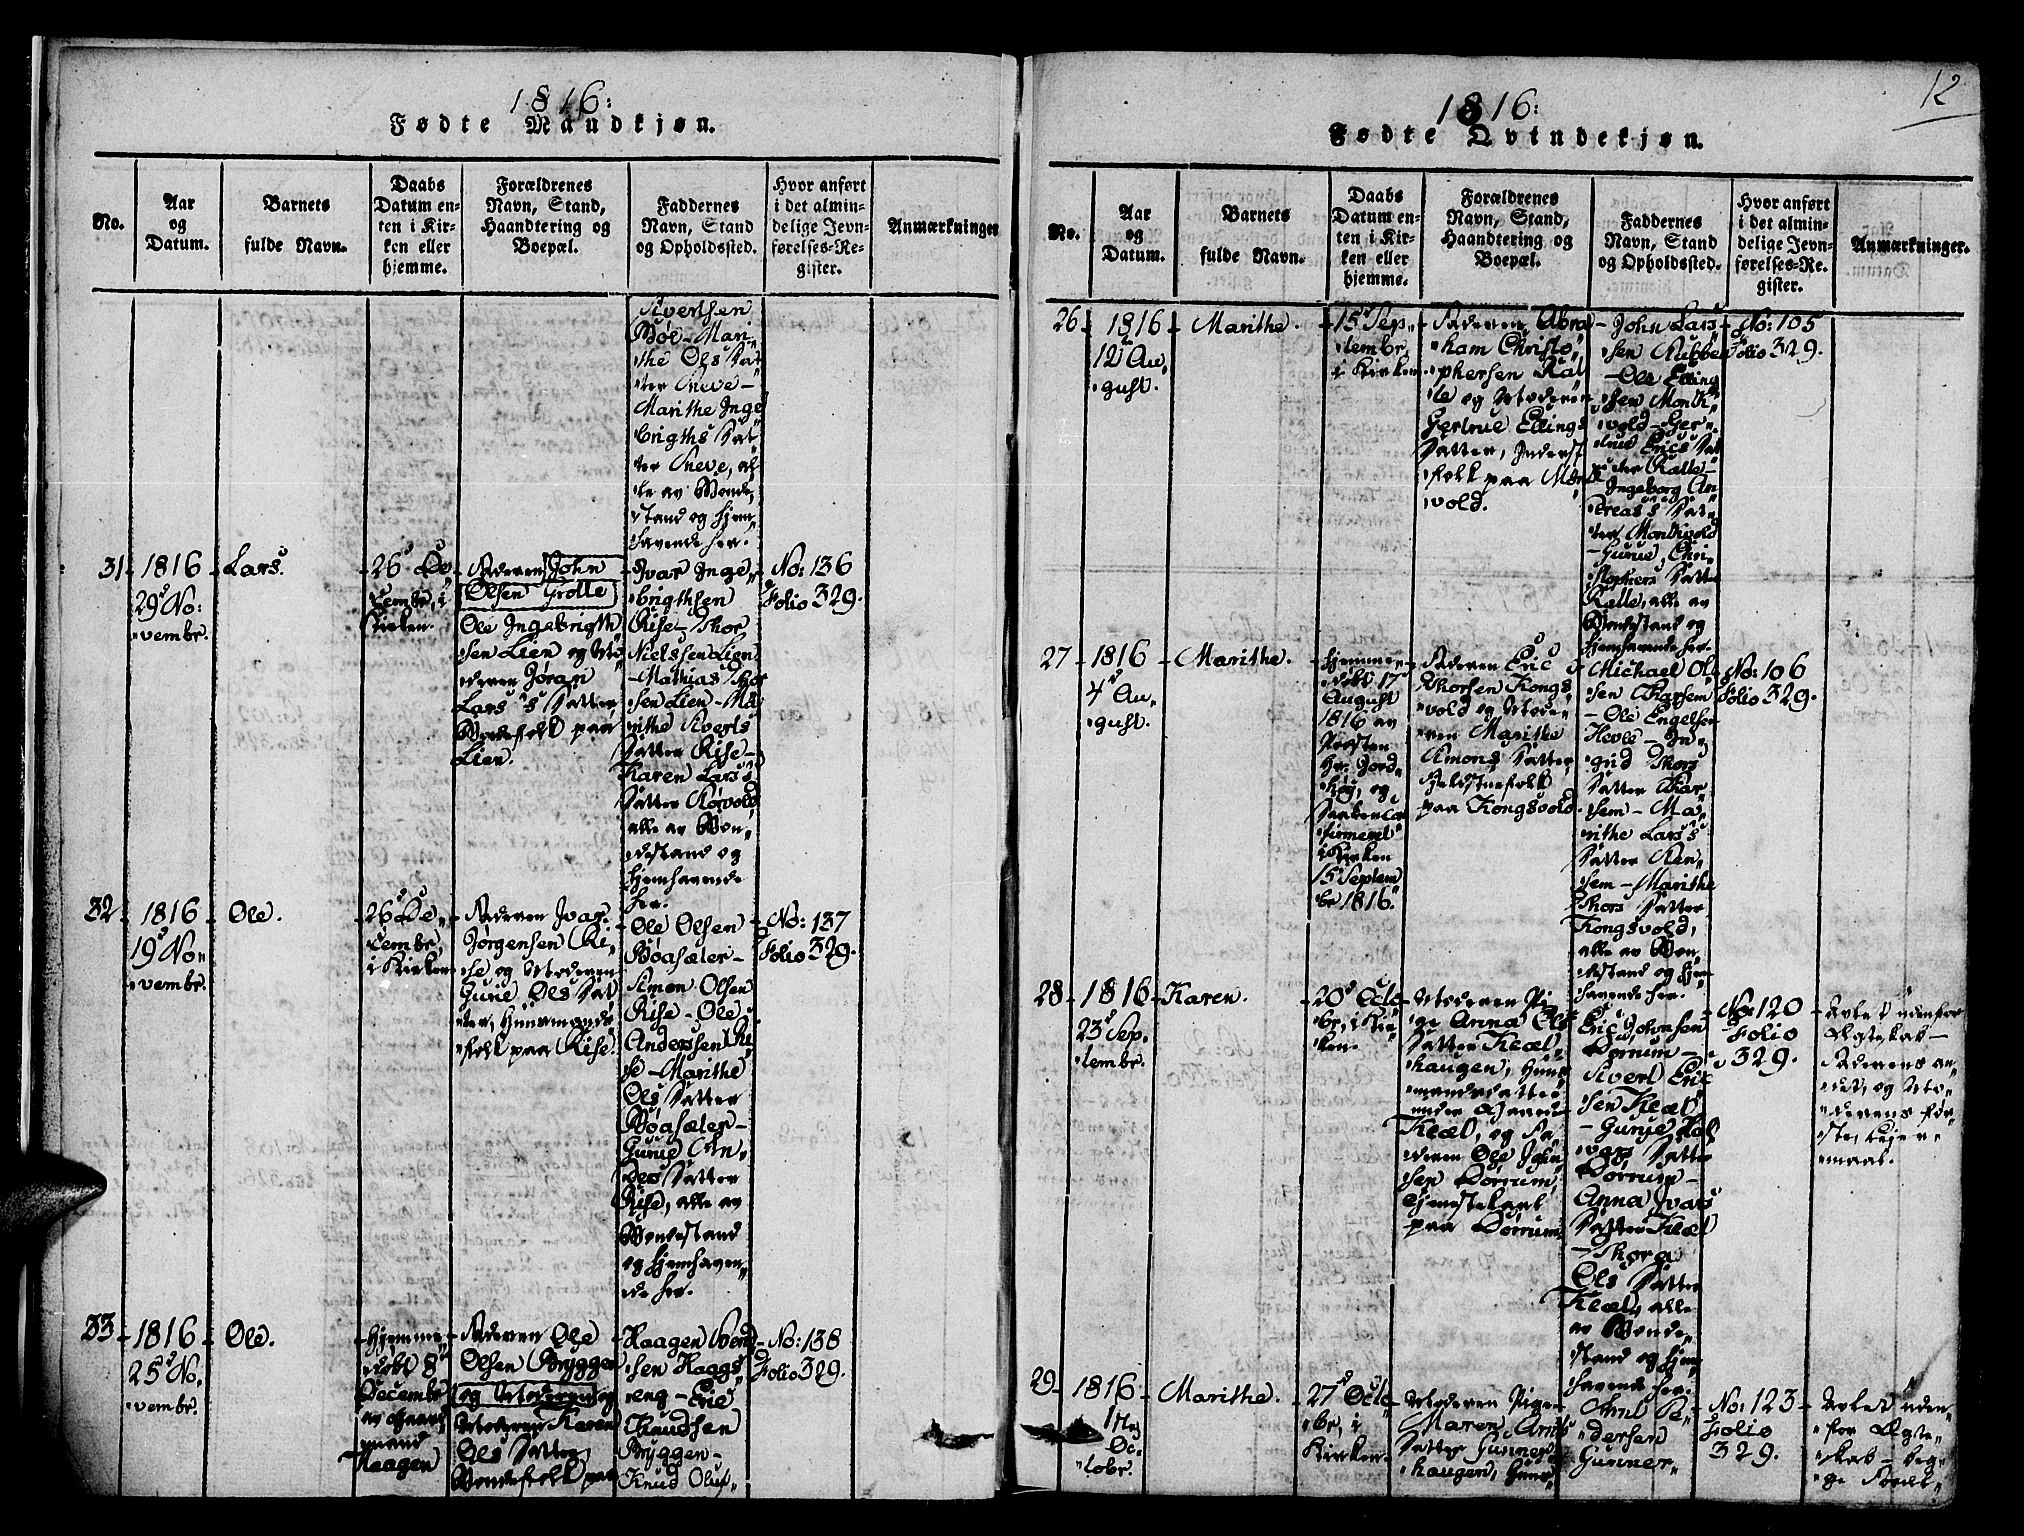 1816:
Fødte Mandkjøn.
No.
Aar
og
Datum.
Barnets
fulde Navn.
Daabs
Datum en-
ten i Kir-
ken eller
hjemme.
Forældrenes
Navn, Stand,
Haandtering og
Boepæl.
Faddernes
Navn, Stand
og Opholdssted.
Hvor anført
i det almin-
delige Jevn-
førelses-Re-
gister.
Anmærkninger
Sivertsen
Böe - Mari-
the Ols Dat-
ter Sneve -
Marithe Inge
brigths Dat-
ter Sneve, al-
le av Bonde-
stand og hjem-
havende her.
31
1816
29d No:
vembr.
Lars.
26d De
cembr, i
Kirken.
Faderen John
Olsen Grolle
Ole Ingebrigth
sen Lien og Mo-
deren Jöran
Lars's Datter
Bondefolk paa
Lien.
Ivar Inge
brigthsen
Rise - Thor
Nielssen Lien
- Mathias Thor
sen Lien - Ma
rithe Siverts
Datter Rise -
Karen Lars's
Datter Rörvold
alle av Bon-
destand og
hjemhavende
her.
No: 136
Folio 329.
32
1816
19d No-
vembr.
Ole.
26d De-
cembr,
i Kirken
Faderen Ivar
Jörgensen Ri-
se og Moderen
Gurue Ols Dat
ter, Huusmands
folk paa Rise.
Ole Olsen
Böasæter -
Simen Olsen
Rise - Ole
Anderssen Ri
se - Marithe
Ols Datter
Böasæter -
Gurue An-
ders Datter
Rise, alle av
Bondestand
og hjemhaven-
de her.
No: 137
Folio 329.
33
1816
25d No-
vembr.
Ole.
Hjemme-
døbt 8d
December
av Gaard
mand
Haagen
Faderen Ole
Olsen Bryggen
og Moderen og
Moderen Karen
Ols Datter
Bondefolk paa
Haagen Svend
sen Haags
eng - Eric
Knudsen
Bryggen -
Knud Oluf
No: 138
Folio 329.
12
1816:
Fødte Qvindekjøn.
No.
Aar
og
Datum.
Barnets
fulde Navn.
Daabs
Datum en-
ten i Kir-
ken eller
hjemme.
Forældrenes
Navn, Stand,
Haandtering og
Boepæl.
Faddernes
Navn, Stand
og Opholdssted.
Hvor anført
i det almin-
delige Jevn-
førelses-Re-
gister.
Anmærkninger.
26
1816
12te Au
gust.
Marithe.
15d Sep-
tembr
i Kirken.
Faderen Abra
ham Christo
phersen Ral
le og Moderen
Gertrue Ellings
Datter, Inderst
folk paa Mön
vold.
John Lars
sen Rubben
- Ole Elling
sen Monk
vold - Ger-
trud Erics Dat
ter Ralle -
Ingeborg An-
dreas's Dat-
ter Monkvold
- Gurue Chri-
stophers Datter
Ralle, alle av
Bondestand og
hjemhavende her.
No: 105
Folio 329.
27
1816
4d Au-
gust.
Marithe.
Hjemme-
døbt 17d
August
1816 av
Presten
Hr. Jord-
höy, og
Daaben Con
firmeret
i Kirken
15d Septem
br 1816.
Faderen Eric
Thorsen Kongs
vold og Mode-
ren Marithe
Amons Datter,
Fieldstuefolk
paa Kongsvold.
Michael Ol
sen
- Ole Engelsen
Hevle - In-
gud Thors
Datter
- Ma-
rithe Lars's
Datter
- Marithe
Thors Datter
Kongsvold,
alle av Bon-
destand og hjem-
havende her.
No: 106
Folio 329.
28
1816
23d Sep-
tembr.
Karen.
20d Octo
br, i Kir-
ken.
Moderen Pi-
ge Anna Ols
Datter Kleæt-
haugen, Huus
mandsdatter
under Gaarden
Kleæt, og Fa
deren Ole John
sen Dörrum
Tjenestekarl
paa Dörrum.
Eric Johnsen
Dörrum -
Sivert Eric
sen Kleæt
- Gurue Hal
vars Datter
Dörrum -
Anna Ivars
Datter Kleæt
- Thora
Ols Datter
Kleæt, alle
av Bonde-
stand og hjem-
havende her.
No: 120
Folio
329.
Avlet udenfor
Ægteskab -
Faderens an-
det, og Mo-
derens før-
ste, Leier-
maal.
29
1816
1ste
Oc-
tobr.
Marithe.
27d Octo
br, i
Kirken.
Moderen Pige
Maren Arnts
Datter Gunner
haugen, Huus
Arnt Pe-
dersen
Gunner
No: 123
Folio
329.
Avlet uden-
for Ægte-
skab - beg-
ge Foræl-